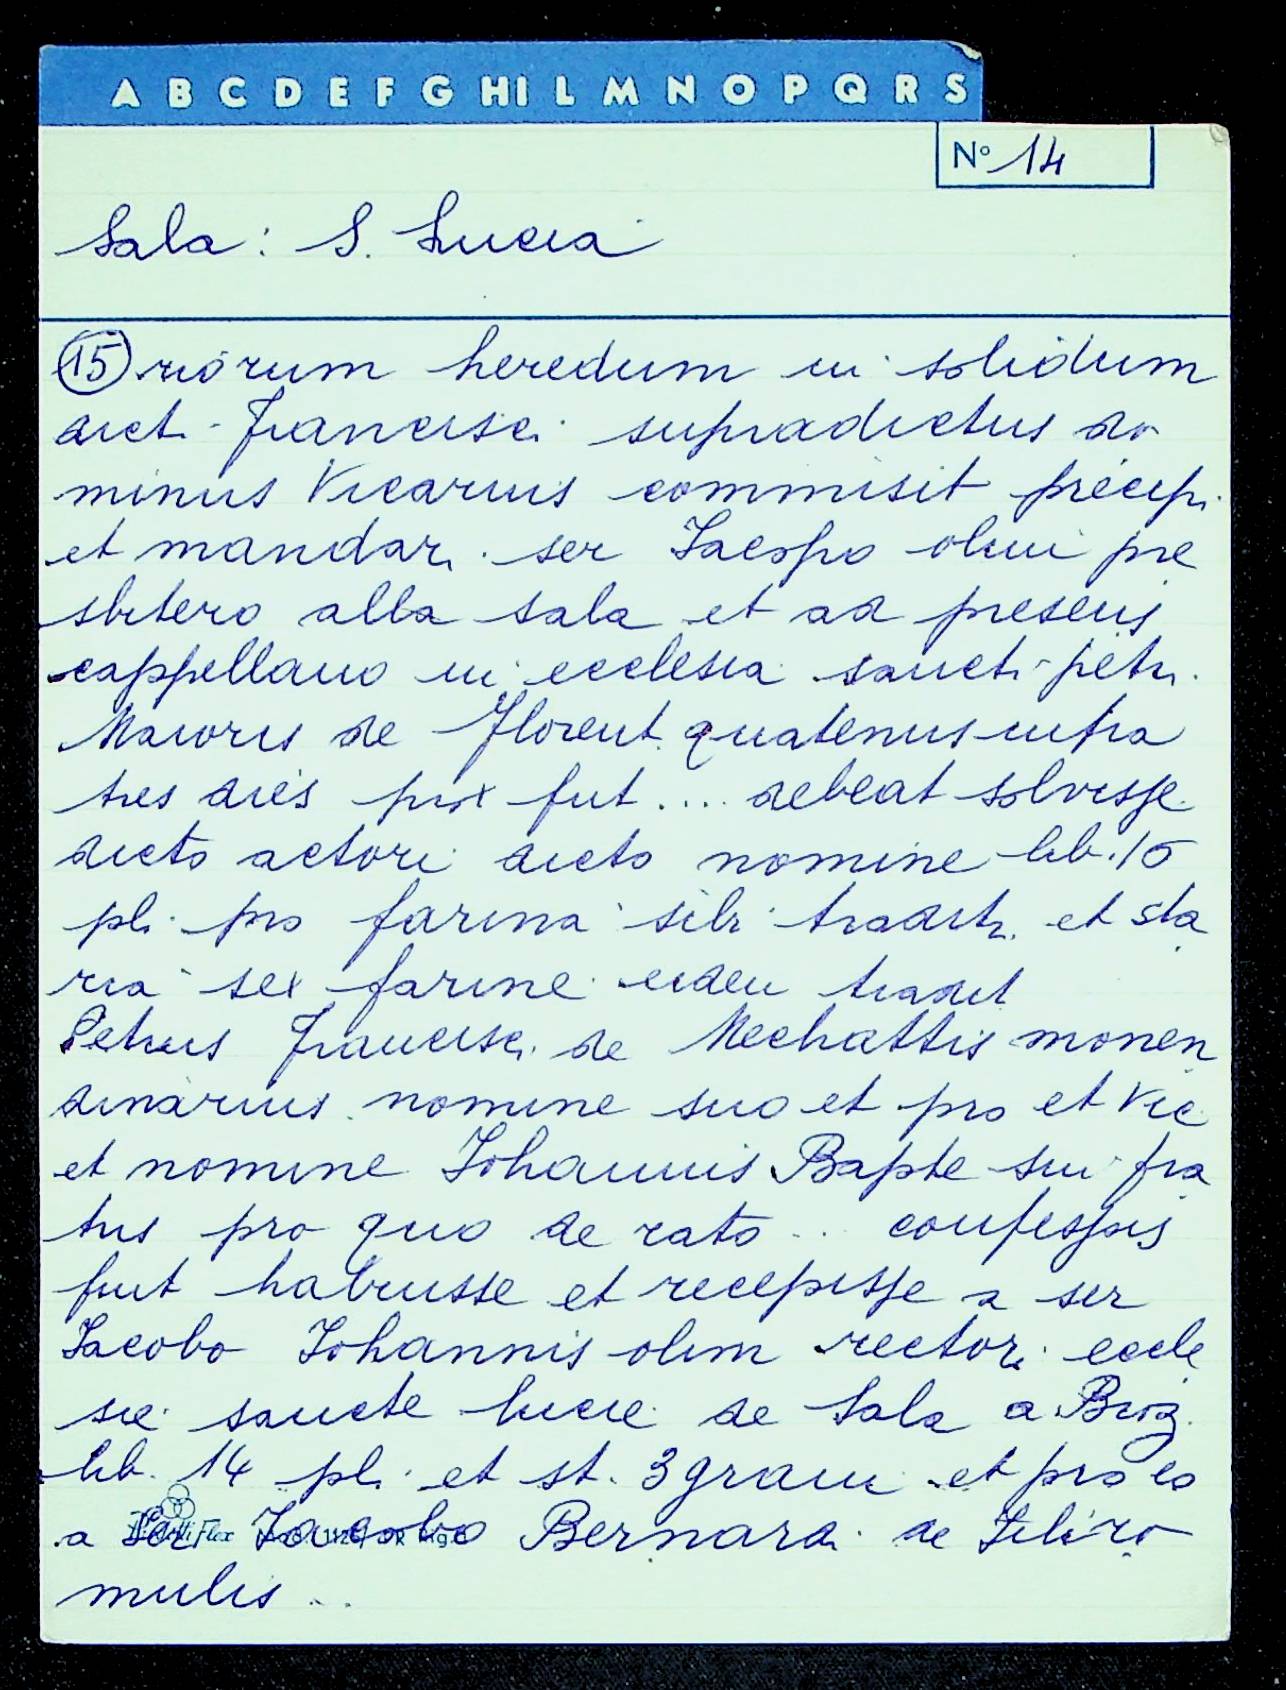 A B C D E F G HI L M N O P Q R S
N° 14
Sala: S. Lucia
15 riorum heredum in solidum
dicti Francisci supradictus do
minus Vicarius commisit precipi
et mandari ser Iacopo olim pre
sbitero alla Sala et ad presens
cappellano in ecclesia sancti petri
Maioris de Florent. quatenus infra
tres dies prox fut .... debeat solvisse
dicto actori dicto nomine lib. 15
pli. pro farina sibi tradita et sta
ria sex farine eidem tradit
Petrus Francisci de Mechattis monen
dinarius nomine suo et pro et vice
et nomine Iohannis Bapte sui fra
tris pro quo de rato .. confessus
fuit habuisse et recepisse a ser
Iacobo Iohannis olim rectori eccle
sie sancte lucie de Sala a Broz.
lib. 14 pli. et st. 3 grani et pro eo
a Ser Iacobo Bernardi de
mulis ...